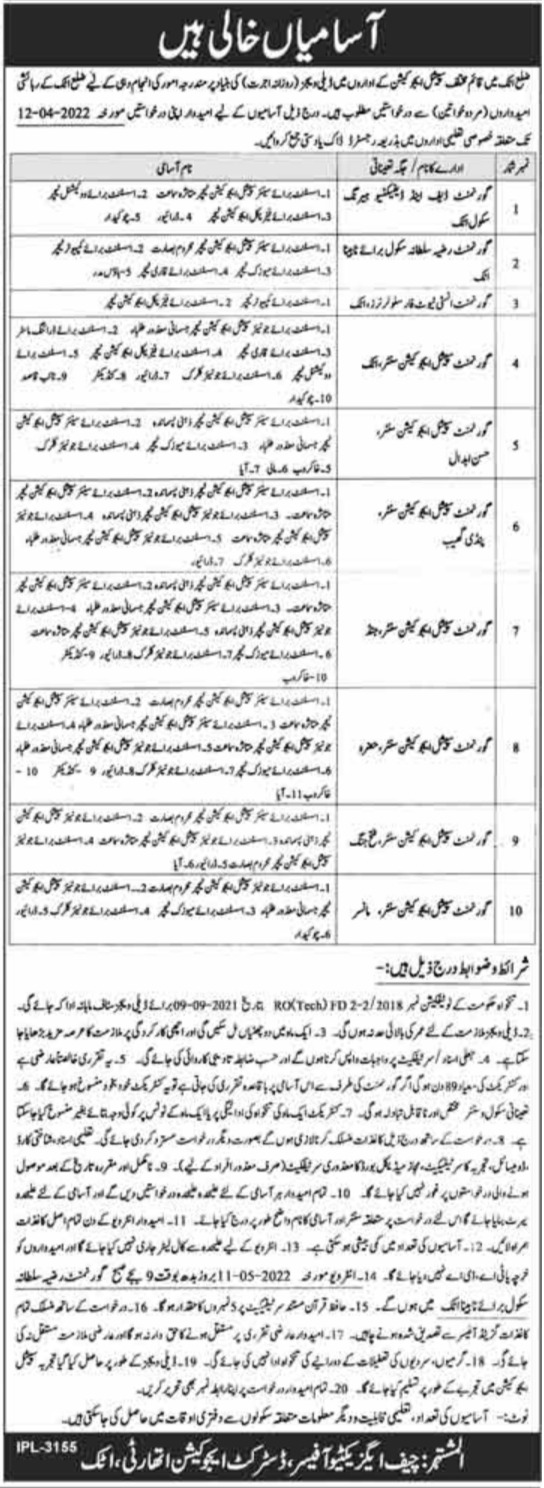 آسامیاں خالی ہیں
ضلع اٹک میں قائم مختلف سپیشل ایجوکیشن کے اداروں میں ڈیلی ویجز (روزانہ اجرت) کی بنیاد پر مندرجہ امور کی انجام دہی کے لیے ضلع اٹک کے رہائشی
امیدواروں (مرد و خواتین) سے درخواستیں مطلوب ہیں۔ درج ذیل آسامیوں کے لیے امیدوار اپنی درخواستیں مورخہ 12-04-2022
تک متعلقہ خصوصی تعلیمی اداروں میں بذریعہ رجسٹرڈ ڈاک یا دستی جمع کروائیں۔
نمبر شمار ادارے کا نام / جگہ تعیناتی نام آسامی
1 گورنمنٹ ڈیف اینڈ ڈیفیکٹیو ہیرنگ سکول اٹک
1۔ اسسٹنٹ برائے سینئر سپیشل ایجوکیشن ٹیچر متاثرہ سماعت 2۔ اسسٹنٹ برائے ووکیشنل ٹیچر
3۔ اسسٹنٹ برائے فزیکل ایجوکیشن ٹیچر 4۔ ڈرائیور 5۔ چوکیدار
2 گورنمنٹ رضیہ سلطانہ سکول برائے نابینا اٹک
1۔ اسسٹنٹ برائے سینئر سپیشل ایجوکیشن ٹیچر محروم بصارت 2۔ اسسٹنٹ برائے کمپیوٹر ٹیچر
3۔ اسسٹنٹ برائے میوزک ٹیچر 4۔ اسسٹنٹ برائے قاری ٹیچر 5۔ ہاؤس مدر
3 گورنمنٹ انسٹی ٹیوٹ فار سلو لرنرز، اٹک
1۔ اسسٹنٹ برائے کمپیوٹر ٹیچر 2۔ اسسٹنٹ برائے فزیکل ایجوکیشن ٹیچر
4 گورنمنٹ سپیشل ایجوکیشن سنٹر، اٹک
1۔ اسسٹنٹ برائے جونیئر سپیشل ایجوکیشن ٹیچر جسمانی معذور طلباء 2۔ اسسٹنٹ برائے ڈرائنگ ماسٹر
3۔ اسسٹنٹ برائے قاری ٹیچر 4۔ اسسٹنٹ برائے فزیکل ایجوکیشن ٹیچر 5۔ اسسٹنٹ برائے
ووکیشنل ٹیچر 6۔ اسسٹنٹ برائے جونیئر کلرک 7۔ ڈرائیور 8۔ کنڈیکٹر 9۔ نائب قاصد
10۔ چوکیدار
5 گورنمنٹ سپیشل ایجوکیشن سنٹر، حسن ابدال
1۔ اسسٹنٹ برائے سینئر سپیشل ایجوکیشن ٹیچر ذہنی پسماندہ 2۔ اسسٹنٹ برائے سینئر سپیشل ایجوکیشن
ٹیچر جسمانی معذور طلباء 3۔ اسسٹنٹ برائے میوزک ٹیچر 4۔ اسسٹنٹ برائے جونیئر کلرک
5۔ خاکروب 6۔ مالی 7۔ آیا
6 گورنمنٹ سپیشل ایجوکیشن سنٹر، پنڈی گھیب
1۔ اسسٹنٹ برائے سینئر سپیشل ایجوکیشن ٹیچر ذہنی پسماندہ 2۔ اسسٹنٹ برائے سینئر سپیشل ایجوکیشن ٹیچر
متاثرہ سماعت 3۔ اسسٹنٹ برائے جونیئر سپیشل ایجوکیشن ٹیچر ذہنی پسماندہ 4۔ اسسٹنٹ برائے جونیئر
سپیشل ایجوکیشن ٹیچر متاثرہ سماعت 5۔ اسسٹنٹ برائے جونیئر سپیشل ایجوکیشن ٹیچر جسمانی معذور طلباء
6۔ اسسٹنٹ برائے جونیئر کلرک 7۔ ڈرائیور
7 گورنمنٹ سپیشل ایجوکیشن سنٹر، جنڈ
1۔ اسسٹنٹ برائے سینئر سپیشل ایجوکیشن ٹیچر ذہنی پسماندہ 2۔ اسسٹنٹ برائے سینئر سپیشل ایجوکیشن ٹیچر
متاثرہ سماعت 3۔ اسسٹنٹ برائے سینئر سپیشل ایجوکیشن ٹیچر جسمانی معذور طلباء 4۔ اسسٹنٹ برائے
جونیئر سپیشل ایجوکیشن ٹیچر ذہنی پسماندہ 5۔ اسسٹنٹ برائے جونیئر سپیشل ایجوکیشن ٹیچر متاثرہ سماعت
6۔ اسسٹنٹ برائے میوزک ٹیچر 7۔ اسسٹنٹ برائے جونیئر کلرک 8۔ ڈرائیور 9۔ کنڈیکٹر
10۔ خاکروب
8 گورنمنٹ سپیشل ایجوکیشن سنٹر، حضرو
1۔ اسسٹنٹ برائے سینئر سپیشل ایجوکیشن ٹیچر محروم بصارت 2۔ اسسٹنٹ برائے سینئر سپیشل ایجوکیشن
ٹیچر متاثرہ سماعت 3۔ اسسٹنٹ برائے سینئر سپیشل ایجوکیشن ٹیچر جسمانی معذور طلباء 4۔ اسسٹنٹ برائے
جونیئر سپیشل ایجوکیشن ٹیچر متاثرہ سماعت 5۔ اسسٹنٹ برائے جونیئر سپیشل ایجوکیشن ٹیچر جسمانی معذور طلباء
6۔ اسسٹنٹ برائے میوزک ٹیچر 7۔ اسسٹنٹ برائے جونیئر کلرک 8۔ ڈرائیور 9۔ کنڈیکٹر 10۔
خاکروب 11۔ آیا
9 گورنمنٹ سپیشل ایجوکیشن سنٹر، فتح جنگ
1۔ اسسٹنٹ برائے سینئر سپیشل ایجوکیشن ٹیچر محروم بصارت 2۔ اسسٹنٹ برائے سینئر سپیشل ایجوکیشن
ٹیچر ذہنی پسماندہ 3۔ اسسٹنٹ برائے سینئر سپیشل ایجوکیشن ٹیچر متاثرہ سماعت 4۔ اسسٹنٹ برائے جونیئر
سپیشل ایجوکیشن ٹیچر محروم بصارت 5۔ ڈرائیور 6۔ آیا
10 گورنمنٹ سپیشل ایجوکیشن سنٹر، مانسر
1۔ اسسٹنٹ برائے سینئر سپیشل ایجوکیشن ٹیچر محروم بصارت 2۔ اسسٹنٹ برائے جونیئر سپیشل ایجوکیشن
ٹیچر جسمانی معذور طلباء 3۔ اسسٹنٹ برائے میوزک ٹیچر 4۔ اسسٹنٹ برائے جونیئر کلرک 5۔ ڈرائیور
6۔ چوکیدار
شرائط و ضوابط درج ذیل ہیں:۔
1۔ تنخواہ حکومت کے نوٹیفکیشن نمبر RO(Tech) FD 2-2/2018 بتاریخ 09-09-2021 برائے ڈیلی ویجز سٹاف ماہانہ ادا کی جائے گی۔
2۔ ڈیلی ویجز ملازمت کے لئے عمر کی بالائی حد نہ ہوگی۔ 3۔ ایک ماہ میں دو چھٹیاں مل سکیں گی اور اچھی کارکردگی پر ملازمت کا عرصہ مزید بڑھایا جا
سکتا ہے۔ 4۔ جعلی اسناد/سرٹیفکیٹ پر واجبات واپس کرنا ہوں گے اور حسب ضابطہ تادیبی کاروائی کی جائے گی۔ 5۔ یہ تقرری خالصتاً عارضی ہے
اور کنٹریکٹ کی معیاد 89 دن ہوگی اگر گورنمنٹ کی طرف سے اس آسامی پر باقاعدہ تقرری کی جاتی ہے تو یہ کنٹریکٹ خود بخود منسوخ ہو جائے گا۔ 6۔
تعیناتی سکول و سنٹر مختص اور ناقابل تبادلہ ہوگی۔ 7۔ کنٹریکٹ ایک ماہ کی تنخواہ کی ادائیگی پر یا ایک ماہ کے نوٹس پر کوئی وجہ بتائے بغیر منسوخ کیا جا سکتا
ہے۔ 8۔ درخواست کے ساتھ درج ذیل کاغذات منسلک کرنا لازمی ہوں گے بصورت دیگر درخواست مسترد کر دی جائے گی۔ تعلیمی اسناد، شناختی کارڈ
،ڈومیسائل، تجربہ کا سرٹیفکیٹ، مجاز میڈیکل بورڈ کا معذوری سرٹیفکیٹ (صرف معذور افراد کے لیے)۔ 9۔ نامکمل اور مقررہ تاریخ کے بعد موصول
ہونے والی درخواستوں پر غور نہیں کیا جائے گا۔ 10۔ تمام امیدوار ہر آسامی کے لئے علیحدہ علیحدہ درخواستیں دیں گے اور آسامی کے لئے علیحدہ
میرٹ بنایا جائے گا اس لئے درخواست پر متعلقہ سنٹر اور آسامی کا نام واضح طور پر درج کیا جائے۔ 11۔ امیدوار انٹرویو کے دن تمام اصل کاغذات
ہمراہ لائیں۔ 12۔ آسامیوں کی تعداد میں کمی بیشی ہو سکتی ہے۔ 13۔ انٹرویو کے لیے علیحدہ سے کال لیٹر جاری نہیں کیا جائے گا اور امیدواروں کو
خرچہ ٹی اے، ڈی اے نہیں دیا جائے گا۔ 14۔ انٹرویو مورخہ 11-05-2022 بروز بدھ بوقت 9 بجے صبح گورنمنٹ رضیہ سلطانہ
سکول برائے نابینا اٹک میں ہوں گے۔ 15۔ حافظ قرآن مستند سرٹیفکیٹ پر 5 نمبروں کا حقدار ہوگا۔ 16۔ درخواست کے ساتھ منسلک تمام
کاغذات گزیٹڈ آفیسر سے تصدیق شدہ ہونے چاہیں۔ 17۔ امیدوار عارضی تقرری پر مستقل ہونے کا حق دار نہ ہوگا اور عارضی ملازمت مستقل نہ کی
جائے گی۔ 18۔ گرمیوں، سردیوں کی تعطیلات کے دورانیے کی تنخواہ ادا نہیں کی جائے گی۔ 19۔ ڈیلی ویجز کے طور پر حاصل کیا گیا تجربہ سپیشل
ایجوکیشن میں تجربے کے طور پر تسلیم کیا جائے گا۔ 20۔ تمام امیدوار درخواست پر اپنا رابطہ نمبر بھی تحریر کریں۔
نوٹ:۔ آسامیوں کی تعداد، تعلیمی قابلیت و دیگر معلومات متعلقہ سکولوں سے دفتری اوقات میں حاصل کی جا سکتی ہیں۔
IPL-3155
المشتہر: چیف ایگزیکٹو آفیسر، ڈسٹرکٹ ایجوکیشن اتھارٹی، اٹک